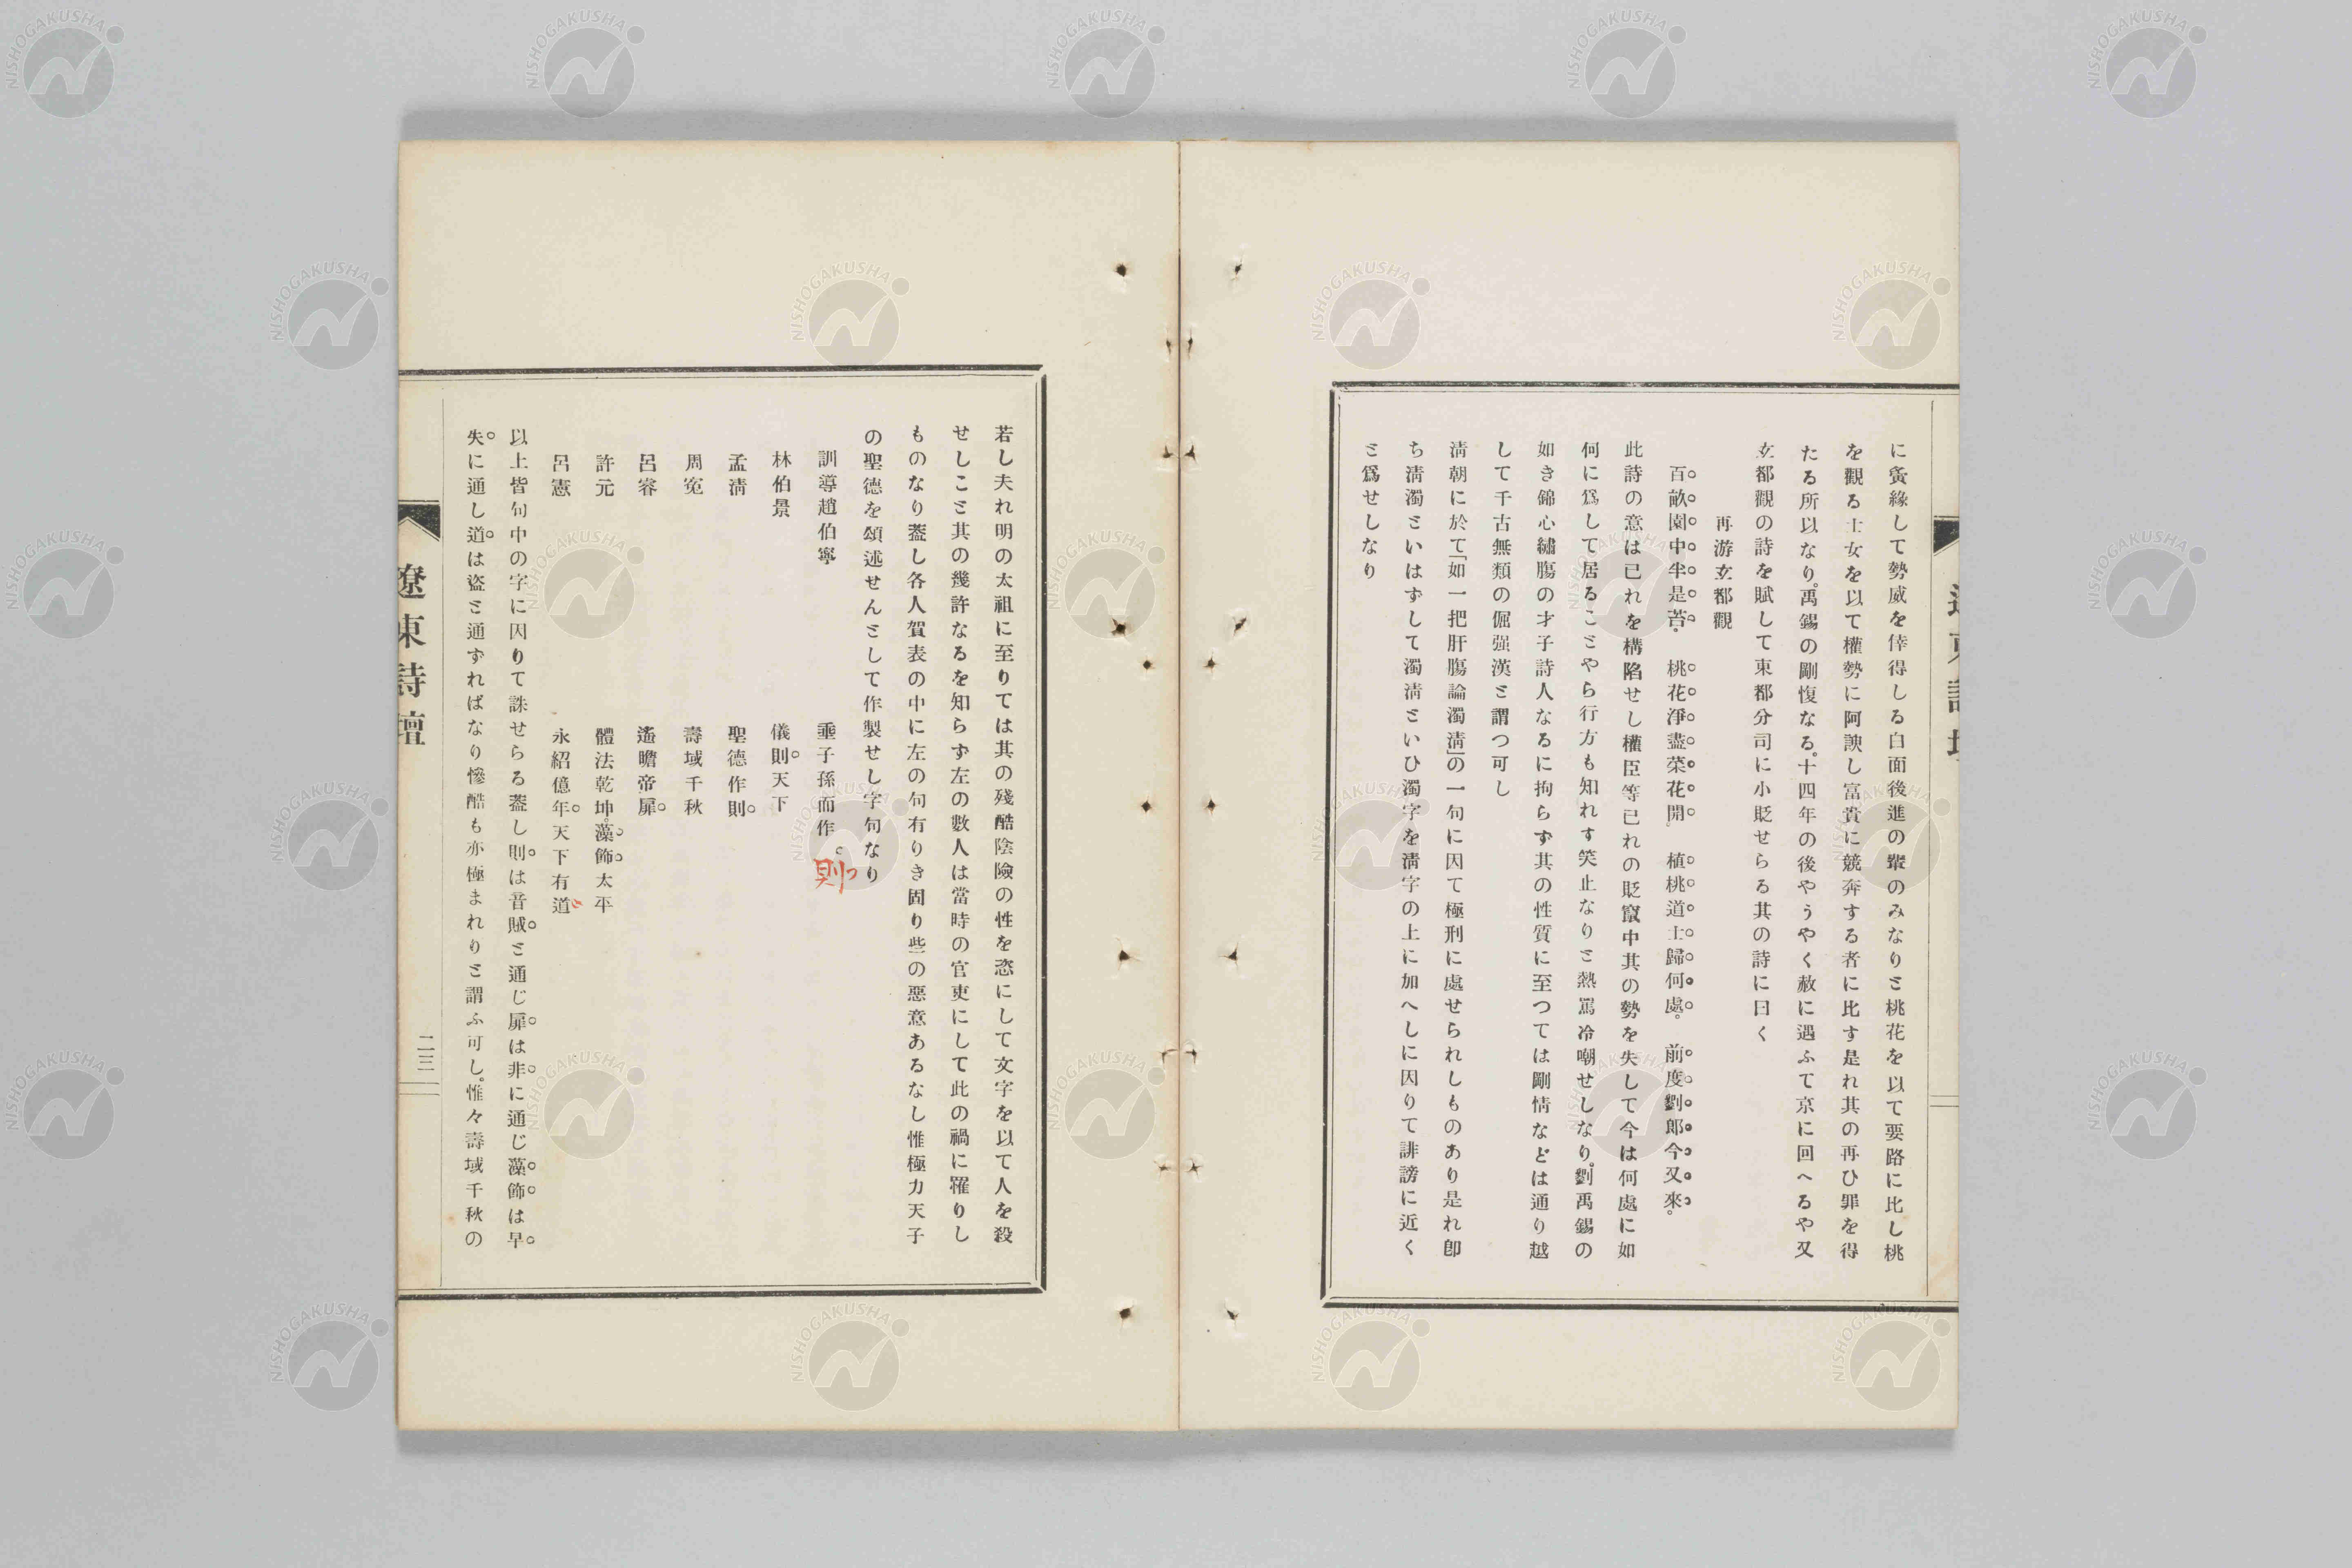 に夤緣して勢威を倖得しる白面後進の輩のみなりと桃花を以て要路に比し桃
を觀る士女を以て權勢に阿諛し富貴に競奔する者に比す是れ其の再ひ罪を得
たる所以なり。禹錫の剛愎なる。十四年の後やうやく赦に遇ふて京に回へるや又
玄都觀の詩を賦して東都分司に小貶せらる其の詩に曰く
再游玄都觀
百畝園中半是苔。桃花淨盡菜花開。植桃道士歸何處。前度劉郞今又來。
此詩の意は已れを構陷せし權臣等已れの貶竄中其の勢を失して今は何處に如
何に爲して居ることやら行方も知れす笑止なりと熱罵冷嘲せしなり。劉禹錫の
如き錦心繡膓の才子詩人なるに拘らず其の性質に至つては剛情などは通り越
して千古無類の倔强漢と謂つ可し
淸朝に於て「如一把肝膓論濁淸」の一句に因て極刑に處せられしものあり是れ卽
ち淸濁といはずして濁淸といひ濁字を淸字の上に加へしに因りて誹謗に近く
と爲せしなり
遼東詩壇
若し夫れ明の太祖に至りては其の殘酷陰險の性を恣にして文字を以て人を殺
せしこと其の幾許なるを知らず左の數人は當時の官吏にして此の禍に罹りし
ものなり蓋し各人賀表の中に左の句有りき固り些の惡意あるなし惟極力天子
の聖德を頌述せんとして作製せし字句なり
訓導趙伯寧 垂子孫而作。則
林伯景 儀則天下
孟淸 聖德作則
周寃 壽域千秋
呂睿 遙瞻帝扉
許元 體法乾坤。藻飾太平
呂憲 永紹億年天下有道
以上皆句中の字に因りて誅せらる蓋し則は音賊と通じ扉は非に通じ藻飾は早
失に通し道は盜と通ずればなり慘酷も亦極まれりと謂ふ可し。惟々壽域千秋の
遼東詩壇
二三
NISHOGAKUSHA